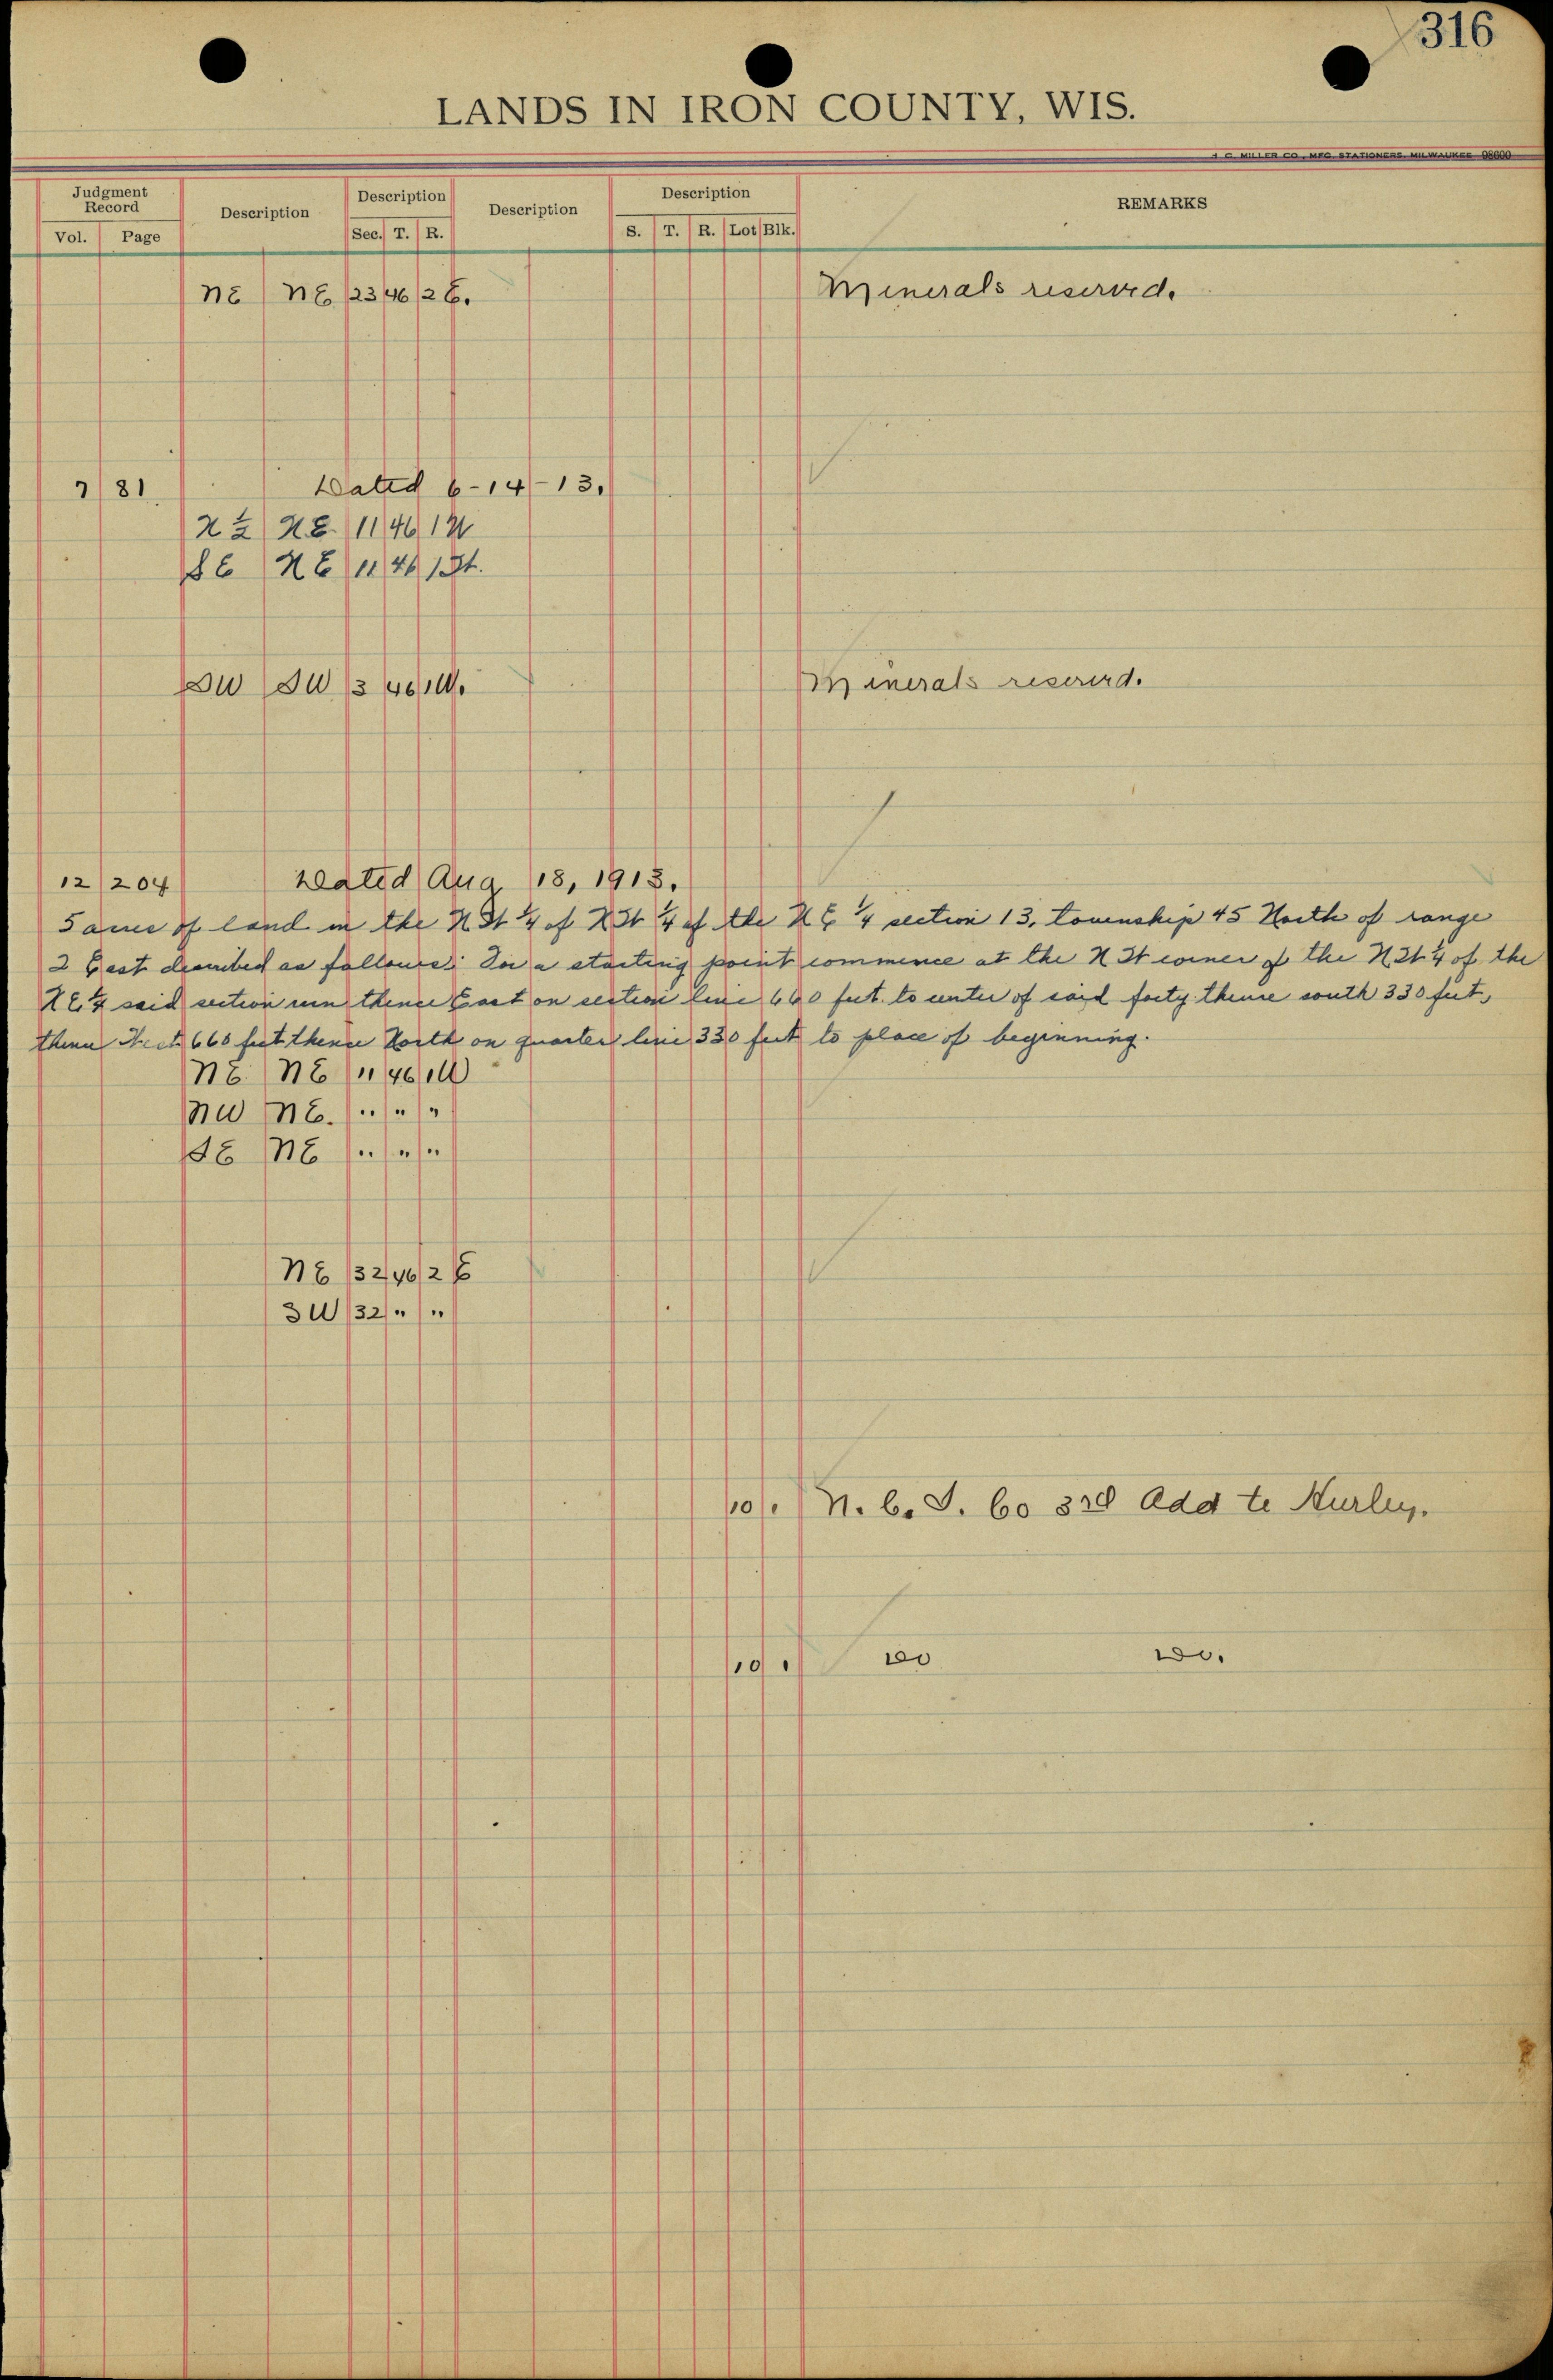 316
LANDS IN IRON COUNTY, WIS.
H. C. MILLER CO., MFG. STATIONERS, MILWAUKEE 98600
Judgment Record Description Description Description Description REMARKS
Vol. Page Sec. T. R. S. T. R. Lot Blk.
NE NE 23 46 2 E. Minerals reserved.
7 81 Dated 6-14-13.
N ½ NE. 11 46 1W
SE NE 11 46 1W.
SW SW 3 46 1W. Minerals reserved.
12 204 Dated Aug 18, 1913.
5 acres of land in the NW ¼ of NW ¼ of the NE ¼ section 13, township 45 North of range
2 East described as follows: For a starting point commence at the NW corner of the NW ¼ of the
NE ¼ said section run thence East on section line 660 feet to center of said forty thence south 330 feet,
thence West 660 feet thence North on quarter line 330 feet to place of beginning.
NE NE 11 46 1W
NW NE. " " "
SE NE " " "
NE 32 46 2 E
SW 32 " "
10 1 N. C. I. Co 3rd Add to Hurley.
10 1 do do.